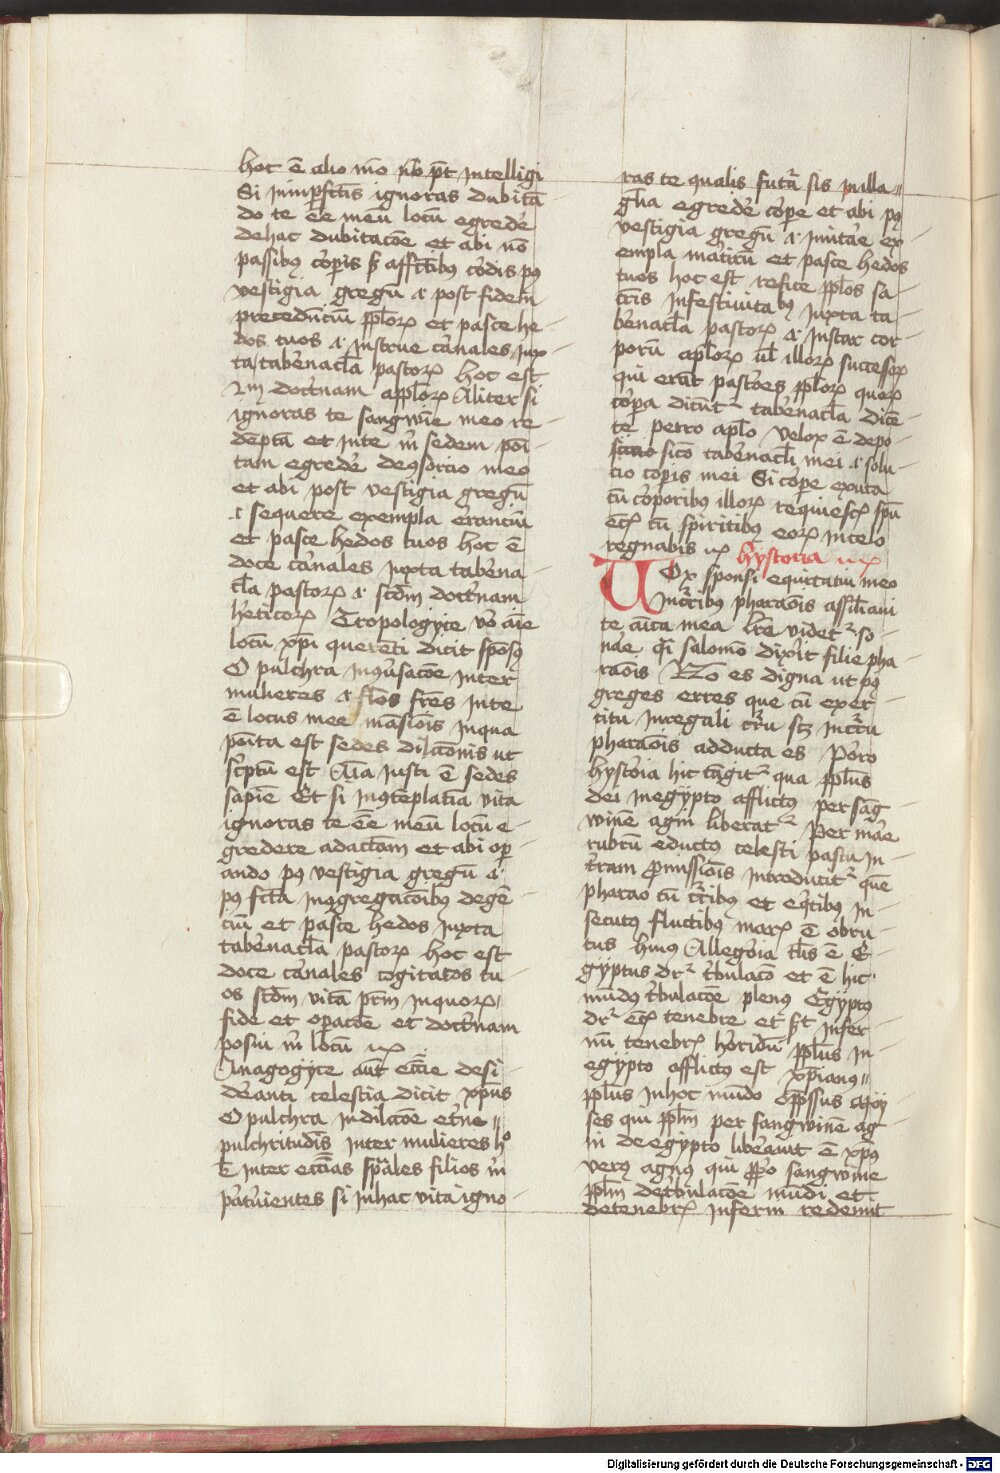 hoc ē alio mō nob pōt intelligi
Si in imp̄fctīs ignoras dubitā
do te eē meū locū egredē
de hac dubitacōe et abi nō
passibꝫ corꝑis sꝫ affctībꝫ cordis pꝰ
vestigia gregū .i. post fidem
precedēciū pplorꝫ et pasce he-
dos tuos .i. instrue carnales iux
ta tabernacla pastorꝫ hoc est
doctrinam applorꝫ Aliter si
ignoras te sangwīe meo re-
dēptā et in te m̄ sedem posi
tam egredē de ꝯsorcio meo
et abi post vestigia gregū
.i. sequere exempla errantiū
et pasce hedos tuos hoc ē
doce carnales iuxta taberna-
cla pastorꝫ .i. scdm doctnam
heticorꝫ Tropologyce vō aīe
locū xp̄i querenti dicit spōsꝰ
O pulchra in ꝯūsacōe inter
mulieres .i. flēs frēs in te
ē locus mee māsiōis in qua
posita est sedes dilcōnis ut
scptū est Aīa iusti ē sedes
sapīe Et si in ꝯtēplatīa vita
ignoras te eē meū locū e-
gredere ad actam et abi opꝫ
ando pꝰ vestigia gregū .i.
pꝰ fcta in ꝯgregacōibꝫ degē
ciū et pasce hedos iuxta
tabernacla pastorꝫ hoc est
doce carnales cogitatos tu-
os scdm vitā pr̄m in quorꝫ
fide et opacōe et doctnam
posui m̄ locū
Anagogyce aūt ecctīe desi
deranti celestia dicit xp̄us
O pulchra in dilcōe etne
pulchritudīs inter mulieres h°
ē inter ecctīas sp̄ales filios m̄
parturientes si in hac vita igno-
ras te qualis futā sis in illa
glīa egredē corꝑe et abi pꝰ
vestigia gregū .i. imitare ex
empla mātrū et pasce hedos
tuos hoc est refice pplos sa-
cris in festivitabꝫ iuxta ta-
bernacla pastorꝫ .i. instar cor-
porū aplorꝫ ul illorꝫ successorꝫ
qui erāt pastores pplorꝫ quorꝫ
corꝑa dicūt² tabernacla dicē
te petro aplo velox ē depo-
sicio tabernacli mei .i. solu-
cio corꝑis mei Si corꝑe exuta
cū corꝑoribꝫ illorꝫ requiescꝫ spū
ecꝫ cū spiritibꝫ eorꝫ in celo
regnabis hystoria
Vox sponsi equitatui meo
in curribꝫ pharaōis assilaui
te aīca mea hec videt² so-
nare qd salomō dixit filie pha
raōis Nō es digna ut pꝰ
greges erres que cū exer-
citu in regali curru scꝫ in curru
pharaōis adducta es Porro
hystoria hic tāgit² qua pplus
dei in egypto afflictꝰ per sāg-
winē agni liberat² Per mare
rubrū eductꝰ celesti pastu in
terram ꝓmissiōis introducit² quē
pharao cū curribꝫ et eqitibꝫ in-
secutꝰ fluctibꝫ marꝫ ē obru-
tus huiꝰ Allegoria tlis ē E-
gyptus dr² tribulacō et ē hic
mūdꝰ tribulacōe plenꝰ Egyptꝰ
dr² ecꝫ tenebre et sꝫt infer-
nū tenebrꝫ horridū pplus in
egypto afflictꝰ est xp̄ianꝰ
pplus in hoc mūdo opp̄ssus Moy
ses qui pplm per sangwine ag-
ni de egypto liberauit ē xp̄ꝰ
verꝰ agnꝰ qui ꝓprio sangwine
pplm de tribulacōe mūdi et
de tenebrꝫ inferni redemit
Digitalisierung gefördert durch die Deutsche Forschungsgemeinschaft - DFG